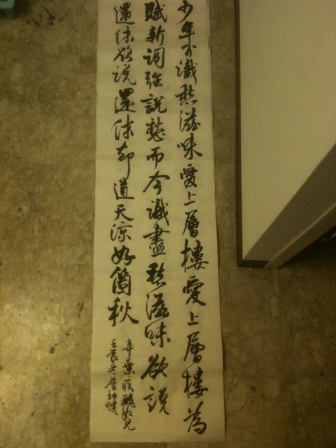 少年不識愁滋味愛上層樓愛上層樓為
賦新詞強說愁而今識盡愁滋味欲說
還休欲說還休却道天涼好箇秋
辛棄疾醜奴兒
壬辰